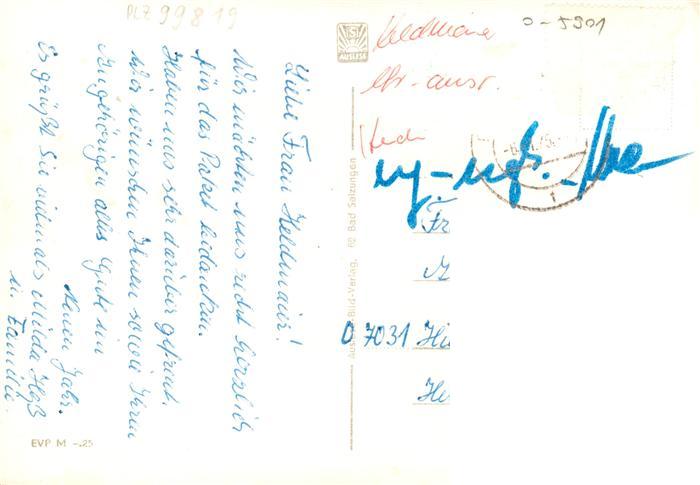 PLZ 99819
Liebe Frau Heldmaier!
Wir möchten uns recht herzlich
für das Paket bedanken.
Haben uns sehr darüber gefreut.
Wir wünschen Ihnen sowie Ihren
Angehörigen alles Gute im
Neuen Jahr.
Es grüßt Sie vielmals Milda Heß
u. Familie.
EVP M -.25
AUSLESE
Auslese-Bild-Verlag, 62 Bad Salzungen
0-5901
Fr
M
D 7031 Hi
He